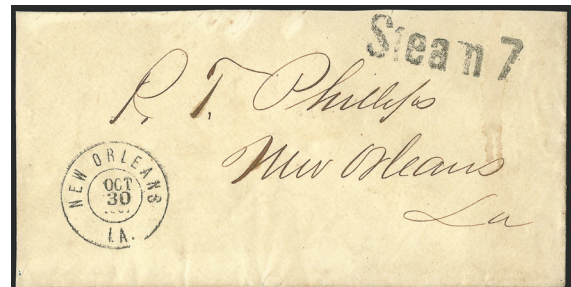 Steam 7
R. T. Phillips
New Orleans
La
NEW ORLEANS
OCT
30
LA.